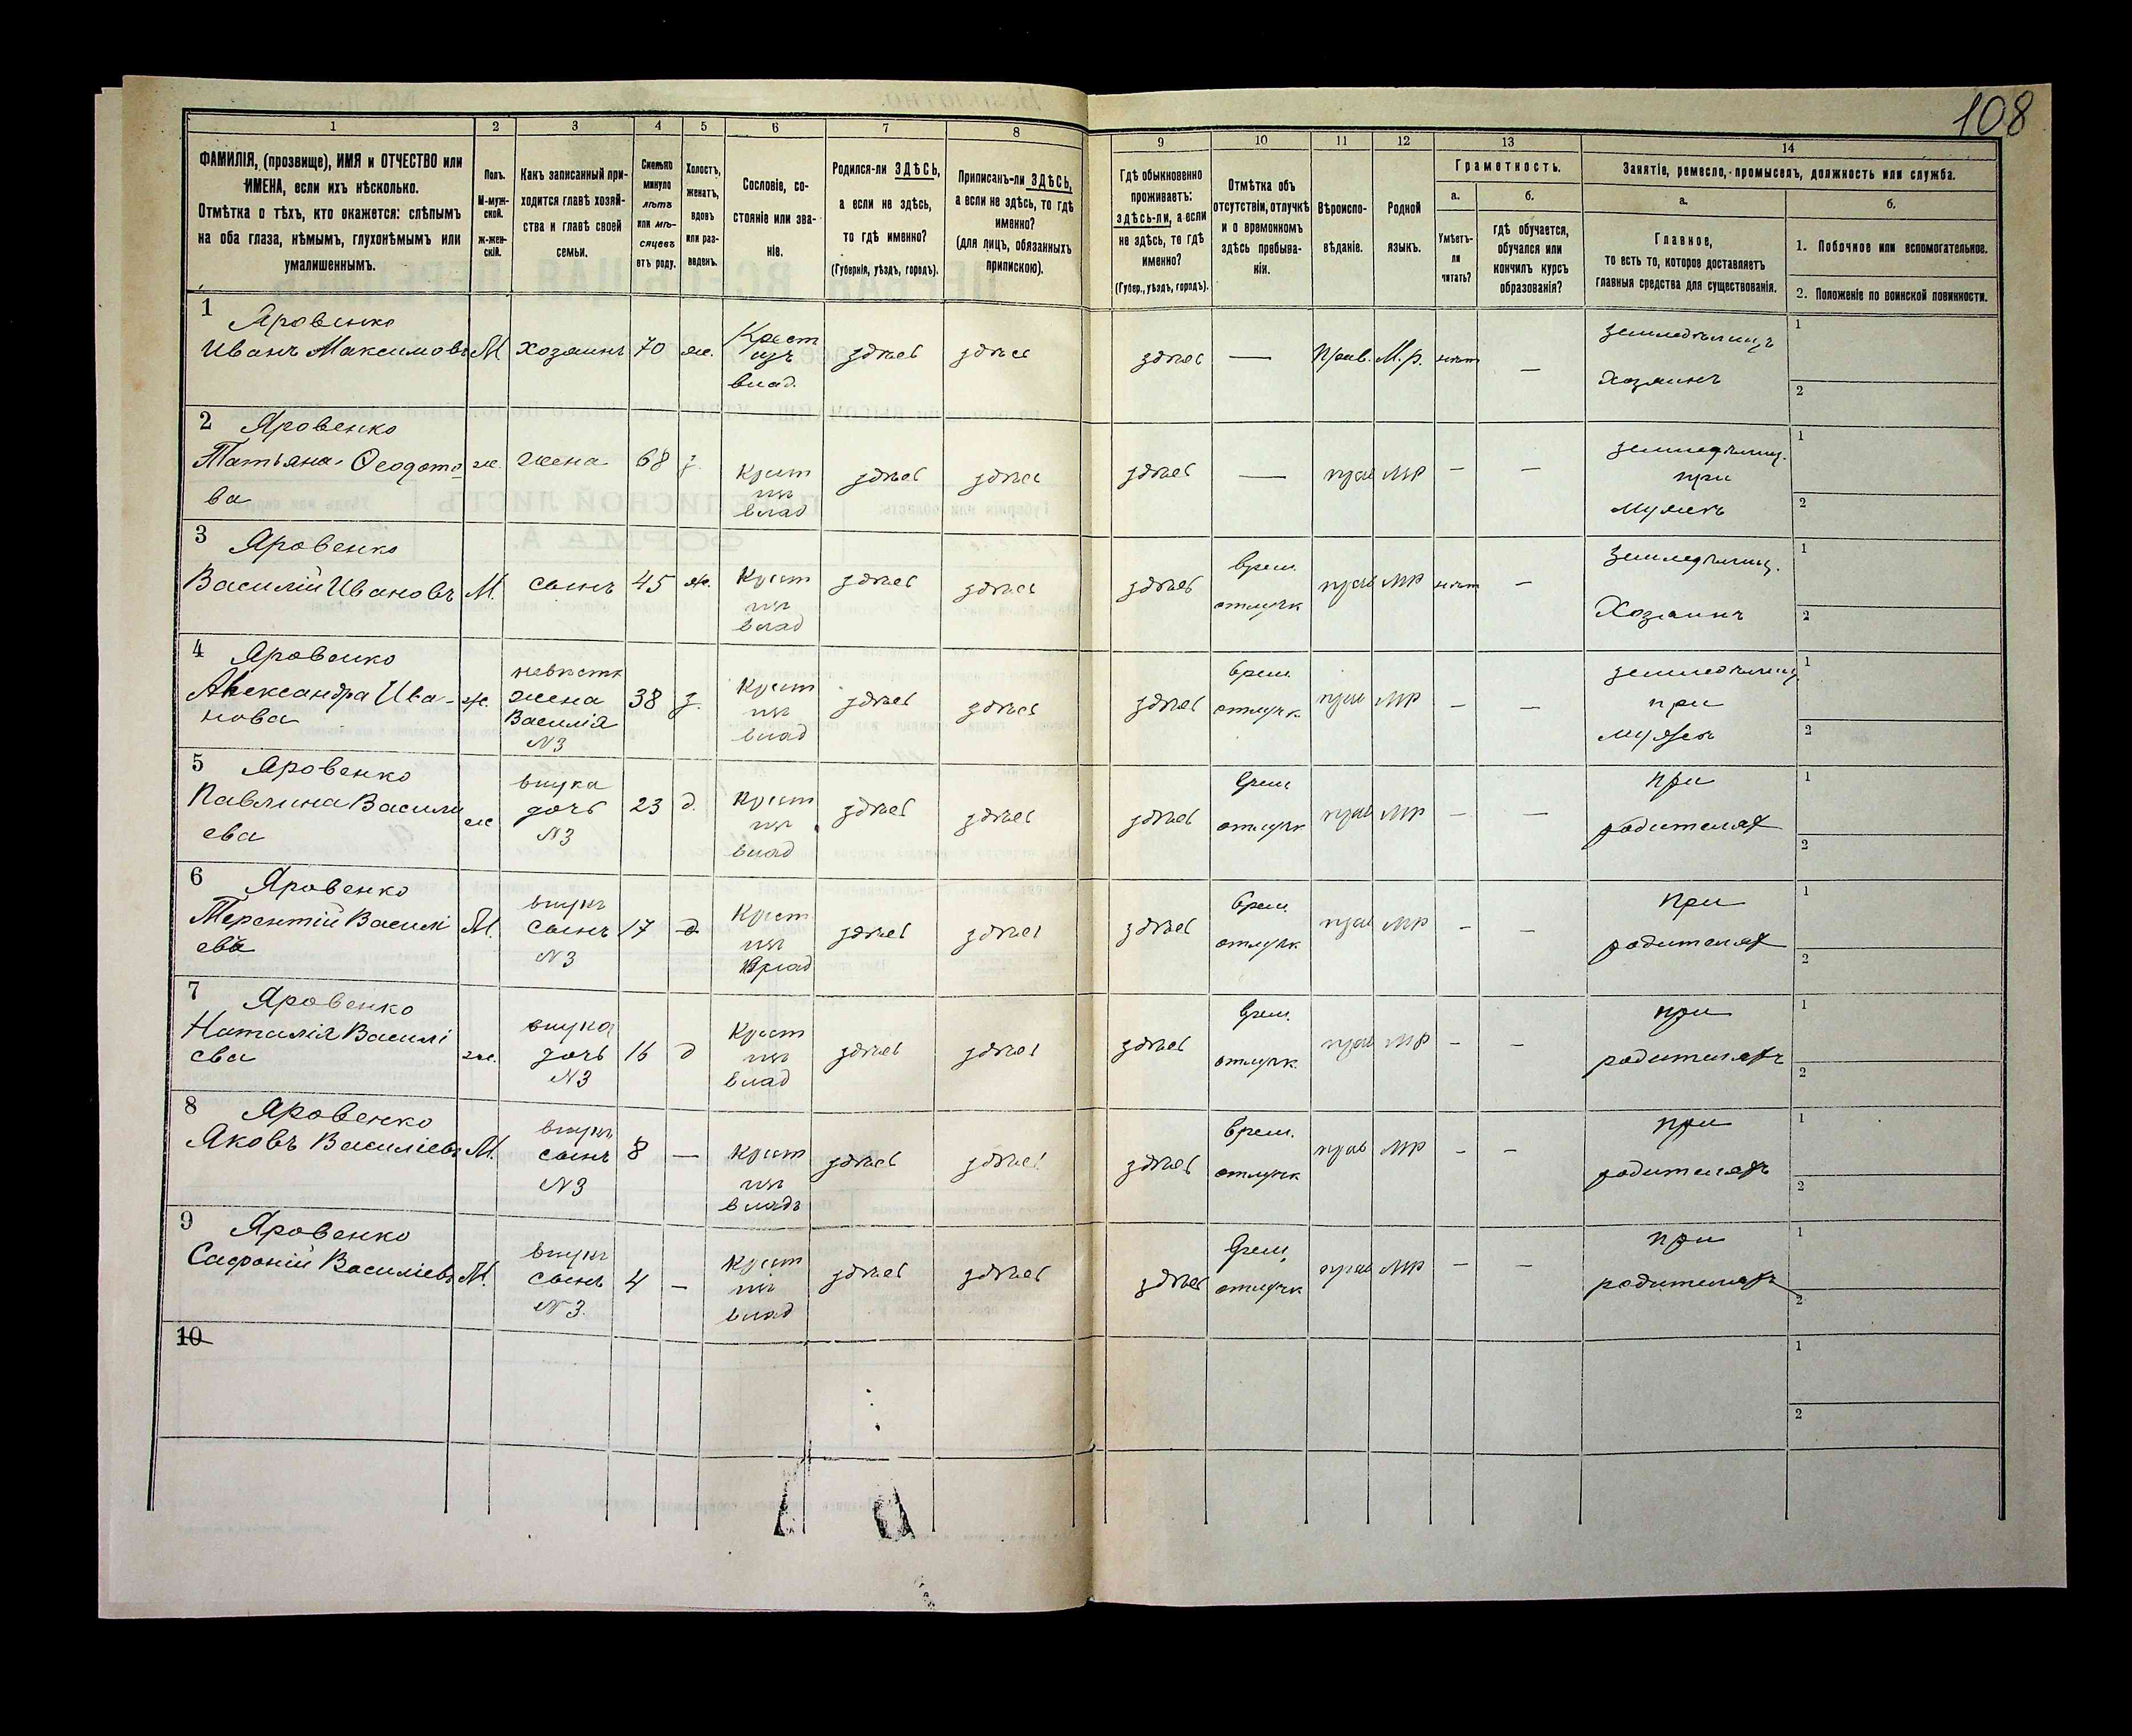 108
1 2 3 4 5 6 7 8 9 10 11 12 13 14
ФАМИЛІЯ, (прозвище), ИМЯ и ОТЧЕСТВО или
ИМЕНА, если ихъ нѣсколько.
Отмѣтка о тѣхъ, кто окажется: слѣпымъ
на оба глаза, нѣмымъ, глухонѣмымъ или
умалишеннымъ.
Полъ.
М-муж-
ской.
ж-жен-
скій.
Какъ записанный при-
ходится главѣ хозяй-
ства и главѣ своей
семьи.
Сколько
минуло
лѣтъ
или мѣ-
сяцевъ
отъ роду.
Холостъ,
женатъ,
вдовъ
или раз-
веденъ.
Сословіе, со-
стояніе или зва-
ніе.
Родился-ли ЗДѢСЬ,
а если не здѣсь,
то гдѣ именно?
(Губернія, уѣздъ, городъ).
Приписанъ-ли ЗДѢСЬ,
а если не здѣсь, то гдѣ
именно?
(для лицъ, обязанныхъ
припискою).
Гдѣ обыкновенно
проживаетъ:
здѣсь-ли, а если
не здѣсь, то гдѣ
именно?
(Губер., уѣздъ, городъ).
Отмѣтка объ
отсутствіи, отлучкѣ
и о временномъ
здѣсь пребыва-
ніи.
Вѣроиспо-
вѣданіе.
Родной
языкъ.
Грамотность.
а.
Умѣетъ-
ли
читать?
б.
гдѣ обучается,
обучался или
кончилъ курсъ
образованія?
Занятіе, ремесло, промыселъ, должность или служба.
а.
Главное,
то есть то, которое доставляетъ
главныя средства для существованія.
б.
1. Побочное или вспомогательное.
2. Положеніе по воинской повинности.
1 Яровенко
Иванъ Максимовъ М. хозяинъ 70 ж. Крест изъ влад. здѣсь здѣсь здѣсь — Прав. М.р. нѣтъ — земледѣлецъ Хозяинъ 1 2
2 Яровенко
Татьяна Ѳеодото
ва ж. жена 68 з. Крест изъ влад здѣсь здѣсь здѣсь — прав МР — — при мужѣ 1 2
3 Яровенко
Василій Ивановъ М. сынъ 45 ж. Крест изъ влад здѣсь здѣсь здѣсь врем. отлучк прав МР нѣтъ — Хозяинъ 1 2
4 Яровенко
Александра Ива-
нова ж. невѣстк жена Василія N3 38 з. Крест изъ влад здѣсь здѣсь здѣсь врем. отлучк. прав МР — — при мужѣ 1 2
5 Яровенко
Павлина Васили
ева ж внука дочь N3 23 д. Крест изъ влад здѣсь здѣсь здѣсь врем. отлучк прав МР — — при родителях 1 2
6 Яровенко
Терентій Василі
евъ М. внукъ сынъ N3 17 Крест изъ влад здѣсь здѣсь здѣсь врем. отлучк прав МР — — При родителях 1 2
7 Яровенко
Наталія Василі
ева ж. внука дочь N3 16 д Крест изъ влад здѣсь здѣсь здѣсь врем. отлучк. прав МР — — при родителяхъ 1 2
8 Яровенко
Яковъ Василіевъ М. внукъ сынъ N3 8 — Крест изъ владъ здѣсь здѣсь здѣсь врем. отлучк прав МР — — при родителяхъ 1 2
9 Яровенко
Сафоній Василіевъ М. внукъ сынъ N3. 4 — Крест изъ влад здѣсь здѣсь здѣсь врем. отлучк прав МР — — при родителяхъ 1 2
10 1 2